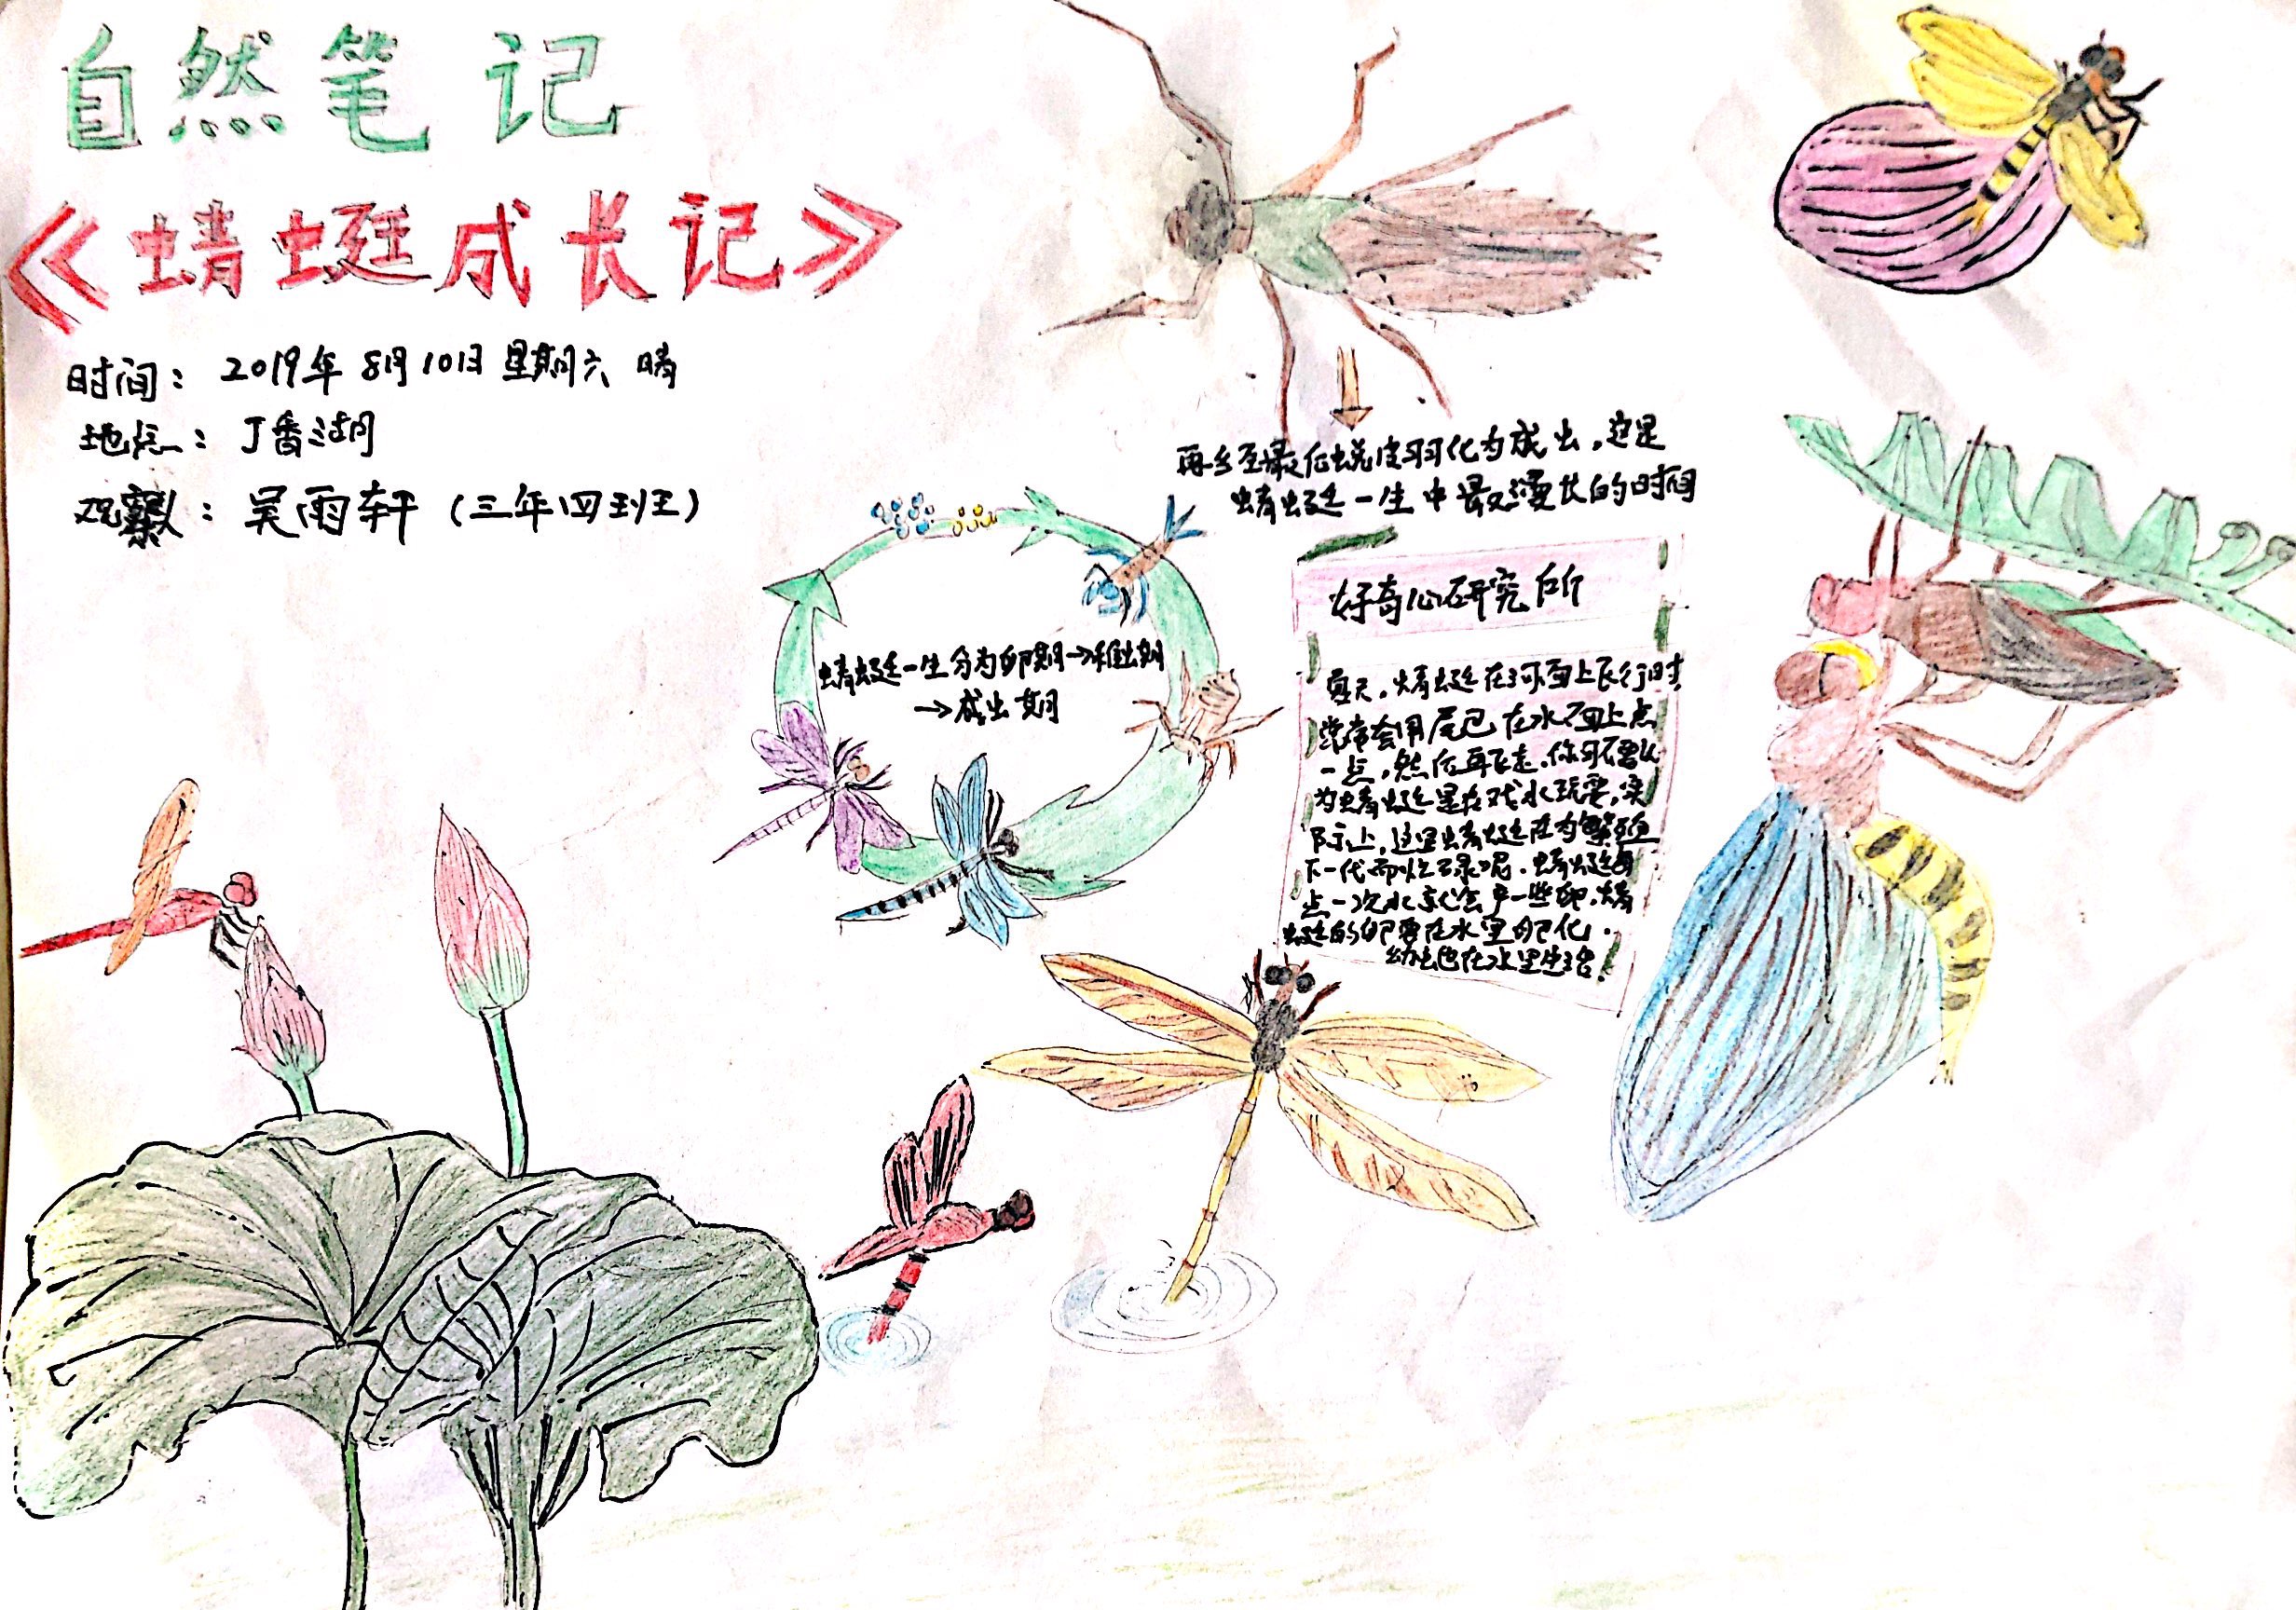 自然笔记
《蜻蜓成长记》
时间：2019年8月10日 星期六 晴
地点：丁香湖
观察人：吴雨轩（三年四班）
蜻蜓一生分为卵期→稚虫期
→成虫期
再多至最后蜕皮羽化为成虫，这是
蜻蜓一生中最漫长的时间
好奇心研究所
夏天，蜻蜓在河面上飞行时
常常会用尾巴在水面上点
一点，然后再飞走。你可不要以
为蜻蜓是在戏水玩耍，实
际上，这是蜻蜓在为繁殖
下一代而忙碌呢。蜻蜓每
点一次水就会产一些卵，蜻
蜓的卵要在水里孵化。
幼虫也在水里生活。